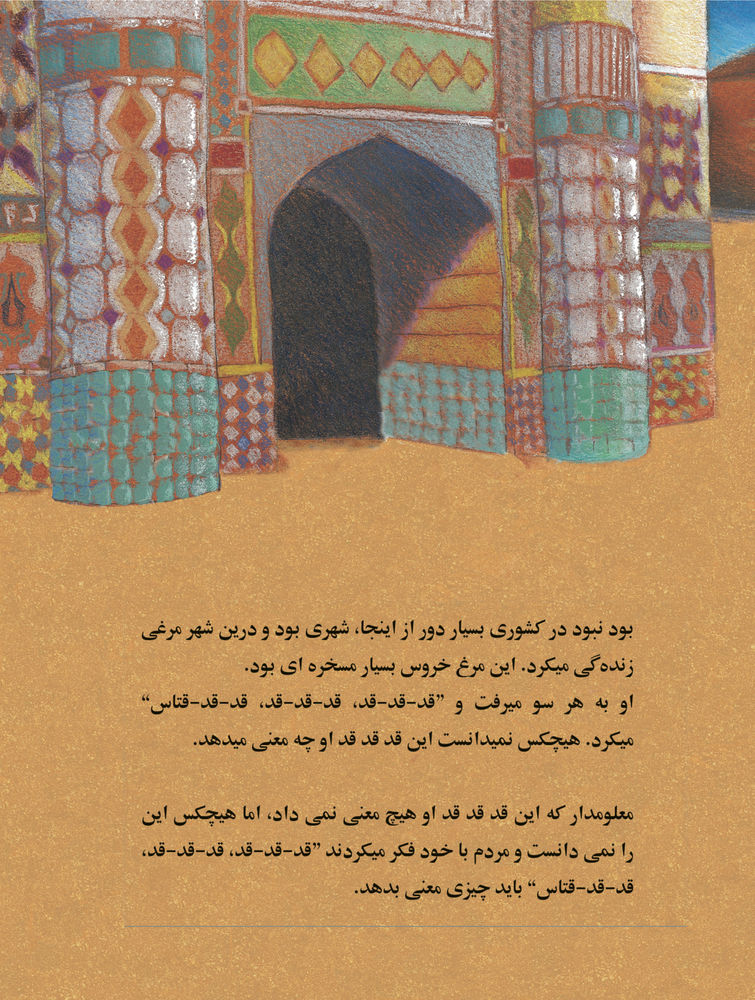 بود نبود در کشوری بسیار دور از اینجا، شهری بود و درین شهر مرغی
زنده‌گی میکرد. این مرغ خروس بسیار مسخره ای بود.
او به هر سو میرفت و ”قد-قد-قد، قد-قد-قد، قد-قد-قتاس“
میکرد. هیچکس نمیدانست این قد قد قد او چه معنی میدهد.
معلومدار که این قد قد قد او هیچ معنی نمی داد، اما هیچکس این
را نمی دانست و مردم با خود فکر میکردند ”قد-قد-قد، قد-قد-قد،
قد-قد-قتاس“ باید چیزی معنی بدهد.